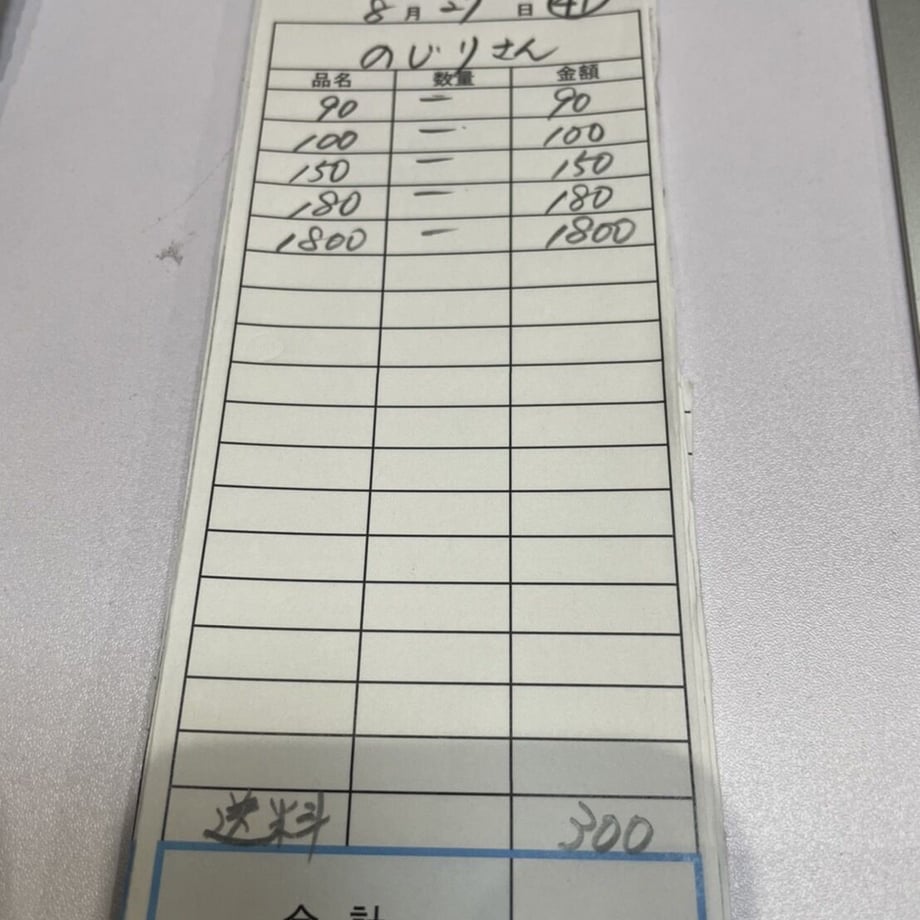 8月27日 41
のじりさん
品名 数量 金額
90 一 90
100 一 100
150 一 150
180 一 180
1800 一 1800
送料 300
合計